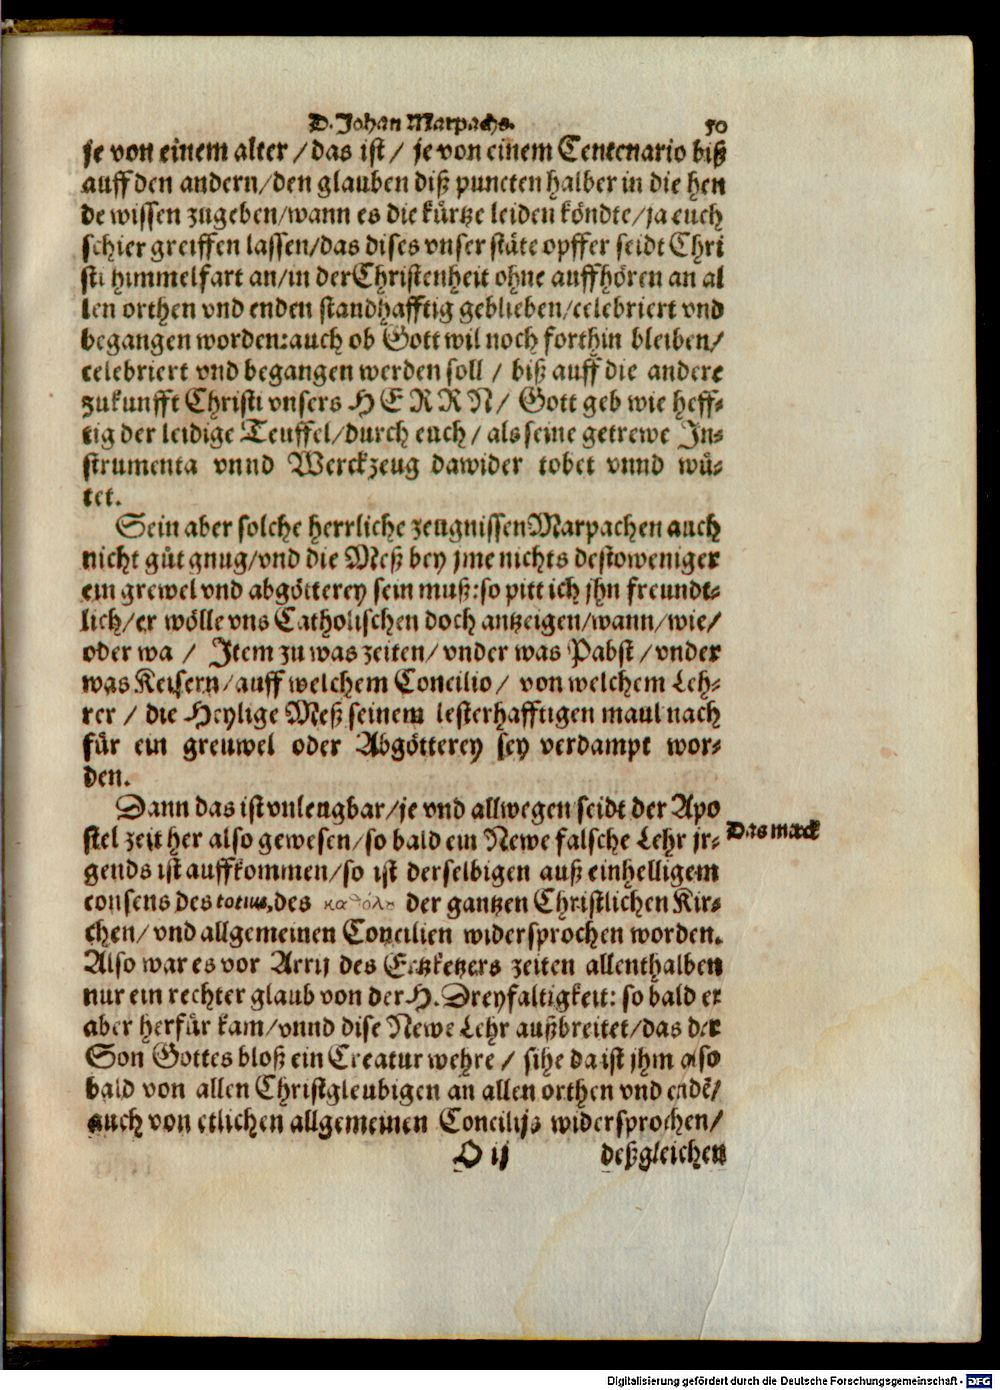 D. Johan Marpachs. 50
je von einem alter / das ist / je von einem Centenario biß
auff den andern / den glauben diß puncten halber in die hen
de wissen zugeben / wann es die kürtze leiden köndte / ja euch
schier greiffen lassen / das dises vnser stäte opffer seidt Chri
sti himmelfart an / in der Christenheit ohne auffhören an al
len orthen vnd enden standhafftig geblieben / celebriert vnd
begangen worden: auch ob Gott wil noch forthin bleiben /
celebriert vnd begangen werden soll / biß auff die andere
zukunfft Christi vnsers HERRN / Gott geb wie heff-
tig der leidige Teuffel / durch euch / als seine getrewe In-
strumenta vnnd Werckzeug dawider tobet vnnd wü-
tet.
Sein aber solche herrliche zeugnissen Marpachen auch
nicht güt gnug / vnd die Meß bey jme nichts destoweniger
ein grewel vnd abgötterey sein muß: so pitt ich jhn freundt-
lich / er wölle vns Catholischen doch antzeigen / wann / wie /
oder wa / Item zu was zeiten / vnder was Pabst / vnder
was Keisern / auff welchem Concilio / von welchem Leh-
rer / die Heylige Meß seinem lesterhafftigen maul nach
für ein greuwel oder Abgötterey sey verdampt wor-
den.
Dann das ist vnleugbar / je vnd allwegen seidt der Apo
stel zeit her also gewesen / so bald ein Newe falsche Lehr jr-
Das merck
gends ist auffkommen / so ist derselbigen auß einhelligem
consens des totius, des καθόλου der gantzen Christlichen Kir-
chen / vnd allgemeinen Concilien widersprochen worden.
Also war es vor Arrij des Ertzketzers zeiten allenthalben
nur ein rechter glaub von der H. Dreyfaltigkeit: so bald er
aber herfür kam / vnnd dise Newe Lehr außbreitet / das der
Son Gottes bloß ein Creatur wehre / sihe da ist jhm also
bald von allen Christgleubigen an allen orthen vnd endē /
auch von etlichen allgemeinen Concilijs widersprochen /
O ij deßgleichen
Digitalisierung gefördert durch die Deutsche Forschungsgemeinschaft - DFG